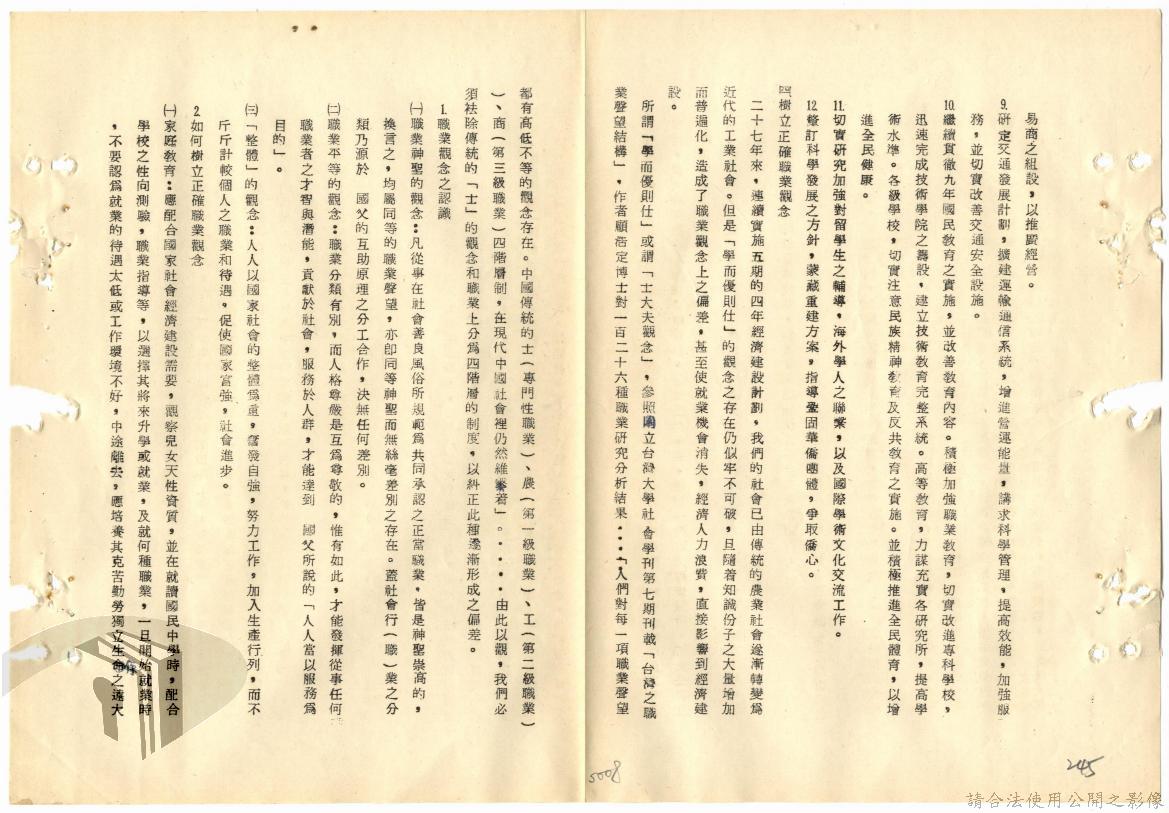 易商之組設，以推廣經營。
9.研定交通發展計劃，擴建運輸通信系統，增進營運能量，講求科學管理，提高效能，加強服
務，並切實改善交通安全設施。
10.繼續貫徹九年國民教育之實施，並改善教育內容。積極加強職業教育，切實改進專科學校，
迅速完成技術學院之籌設，建立技術教育完整系統。高等教育，力謀充實各研究所，提高學
術水準。各級學校，切實注意民族精神教育及反共教育之實施。並積極推進全民體育，以增
進全民健康。
11.切實研究加強對留學生之輔導，海外學人之聯繫，以及國際學術文化交流工作。
12.釐訂科學發展之方針，蒙藏重建方案，指導鞏固華僑團體，爭取僑心。
四樹立正確職業觀念
二十七年來，連續實施五期的四年經濟建設計劃，我們的社會已由傳統的農業社會逐漸轉變爲
近代的工業社會。但是「學而優則仕」的觀念之存在仍似牢不可破，且隨着知識份子之大量增加
而普遍化，造成了職業觀念上之偏差，甚至使就業機會消失，經濟人力浪費，直接影響到經濟建
設。
所謂「學而優則仕」或謂「士大夫觀念」，參照國立台灣大學社會學刊第七期刊載「台灣之職
業聲望結構」，作者顧浩定博士對一百二十六種職業研究分析結果‧‧‧‧「人們對每一項職業聲望
都有高低不等的觀念存在。中國傳統的士（專門性職業）、農（第一級職業）、工（第二級職業）
、商（第三級職業）四階層制，在現代中國社會裡仍然維繫着」。‧‧‧‧由此以觀，我們必
須袪除傳統的「士」的觀念和職業上分爲四階層的制度，以糾正此種逐漸形成之偏差。
1.職業觀念之認識
㈠職業神聖的觀念：凡從事在社會善良風俗所規範爲共同承認之正當職業，皆是神聖崇高的，
換言之，均屬同等的職業聲望，亦卽同等神聖而無絲毫差別之存在。蓋社會行（職）業之分
類乃源於　國父的互助原理之分工合作，決無任何差別。
㈡職業平等的觀念：職業分類有別，而人格尊嚴是互爲尊敬的，惟有如此，才能發揮從事任何
職業者之才智與潛能，貢獻於社會，服務於人群，才能達到　國父所說的「人人當以服務爲
目的」。
㈢「整體」的觀念：人人以國家社會的整體爲重，奮發自強，努力工作，加入生產行列，而不
斤斤計較個人之職業和待遇，促使國家富強，社會進步。
2.如何樹立正確職業觀念
㈠家庭教育：應配合國家社會經濟建設需要，觀察兒女天性資質，並在就讀國民中學時，配合
學校之性向測驗，職業指導等，以選擇其將來升學或就業，及就何種職業，一旦開始就業時
，不要認爲就業的待遇太低或工作環境不好，中途離去，應培養其克苦勤勞獨立生命之遠大
5008
245
請合法使用公開之影像